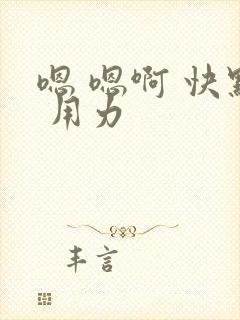 嗯 嗯啊 快點
用力
丰言